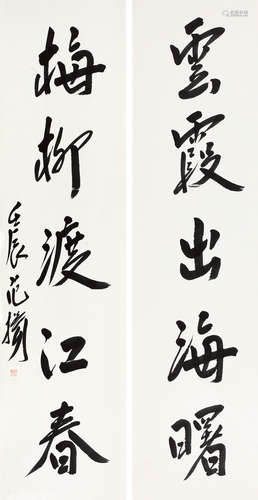 雲霞出海曙
梅柳渡江春
壬辰范擴